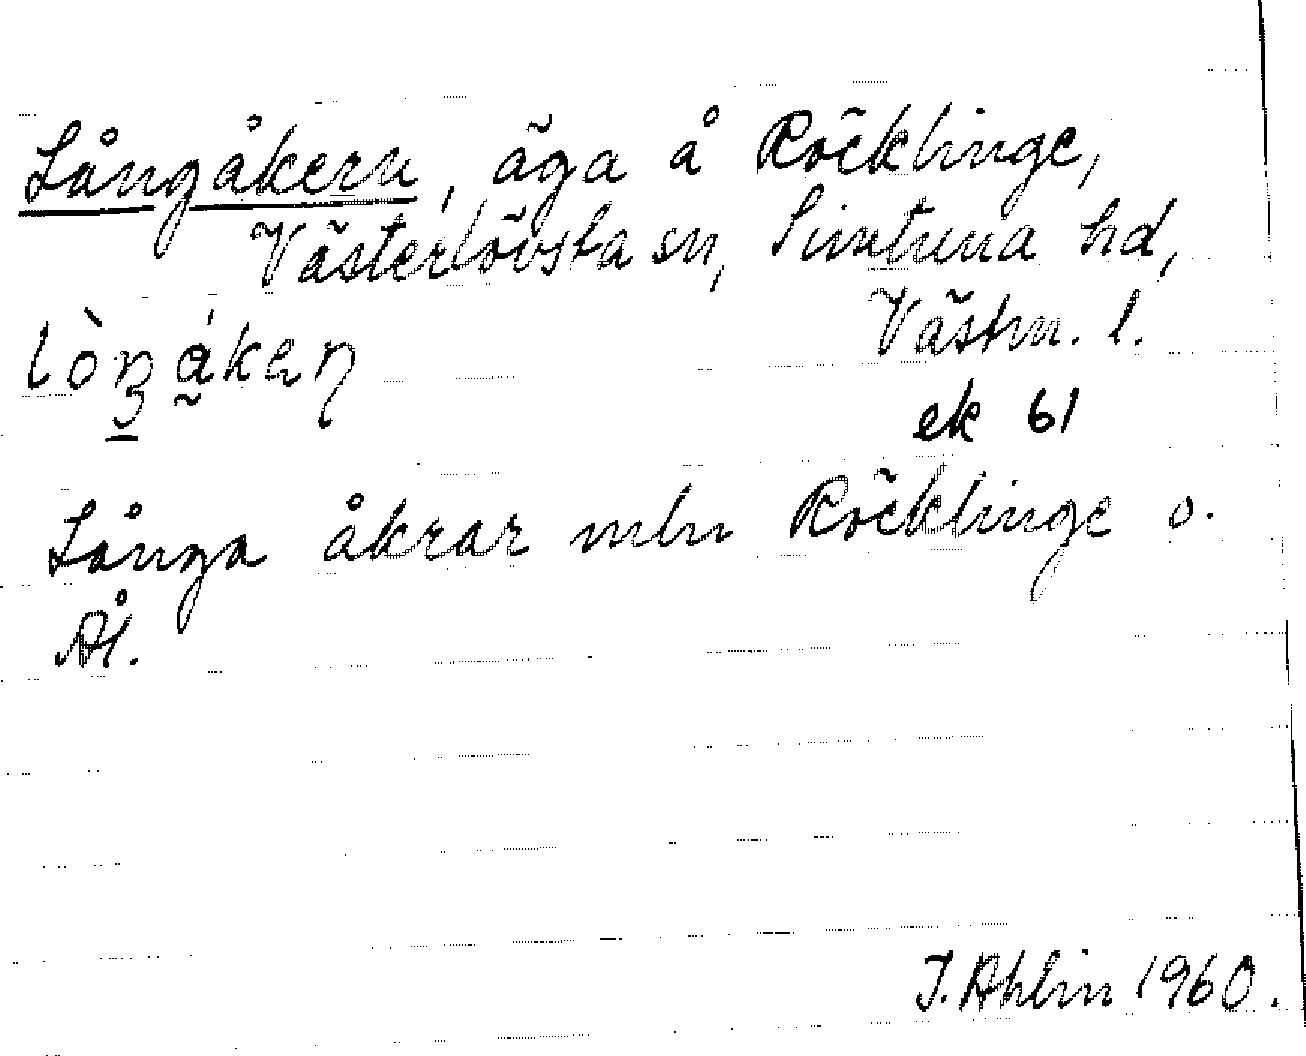 Långåkern, äga å Röcklinge,
Västerlövsta sn, Simtuna hd,
Västm. l.
ek 61
Långa åkrar mln Röcklinge o.
Ål.
J. Ahlin 1960.